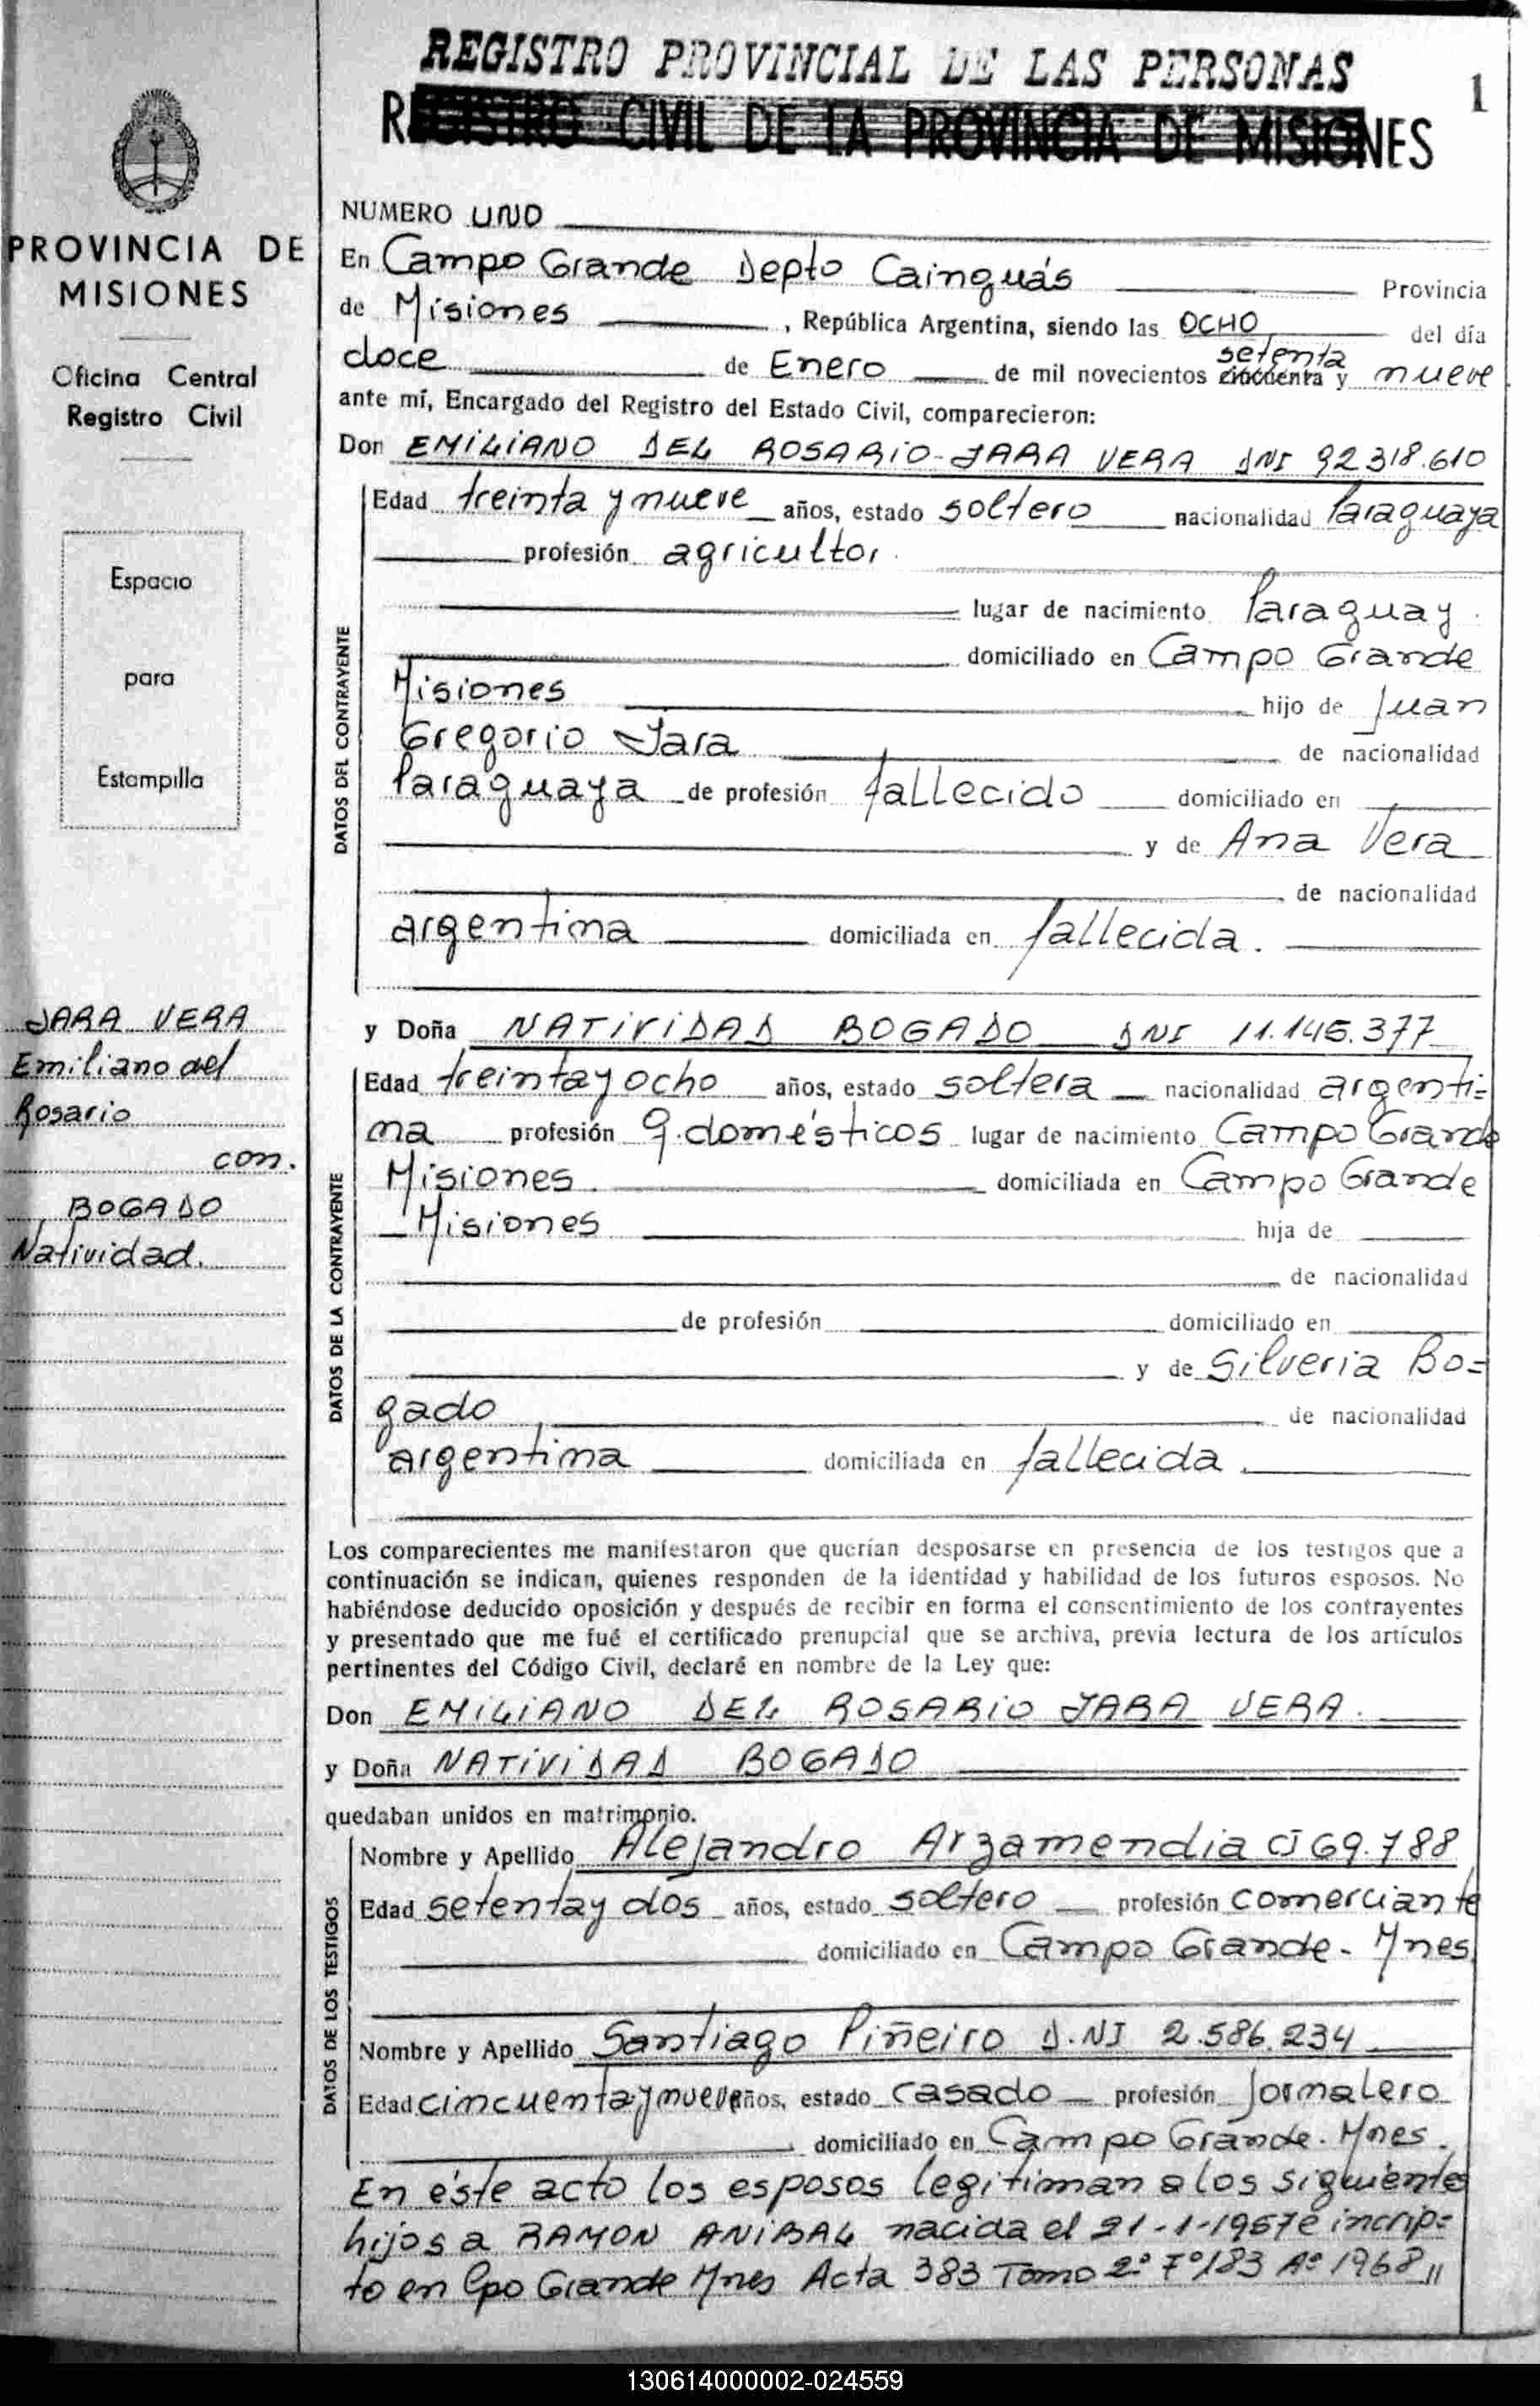 REGISTRO PROVINCIAL DE LAS PERSONAS
1
REGISTRO CIVIL DE LA PROVINCIA DE MISIONES
PROVINCIA DE
MISIONES
Oficina Central
Registro Civil
Espacio
para
Estampilla
JARA VERA
Emiliano del
Rosario
con.
BOGADO
Natividad.
NUMERO UNO
En Campo Grande Depto Cainguás Provincia
de Misiones , República Argentina, siendo las OCHO del día
setenta
doce de Enero de mil novecientos cincuenta y nueve
ante mí, Encargado del Registro del Estado Civil, comparecieron:
Don EMILIANO DEL ROSARIO-JARA VERA DNI 92.318.610
DATOS DEL CONTRAYENTE
Edad treinta y nueve años, estado soltero nacionalidad Paraguaya
profesión agricultor.
lugar de nacimiento Paraguay.
domiciliado en Campo Grande
Misiones hijo de Juan
Gregorio Jara de nacionalidad
Paraguaya de profesión fallecido domiciliado en
y de Ana Vera
de nacionalidad
argentina domiciliada en fallecida.
y Doña NATIVIDAD BOGADO DNI 11.145.377
DATOS DE LA CONTRAYENTE
Edad treinta y ocho años, estado soltera nacionalidad argenti=
na profesión q.domésticos lugar de nacimiento Campo Grande
Misiones. domiciliada en Campo Grande
Misiones hija de
de nacionalidad
de profesión domiciliado en
y de Silveria Bo=
gado de nacionalidad
argentina domiciliada en fallecida.
Los comparecientes me manifestaron que querían desposarse en presencia de los testigos que a
continuación se indican, quienes responden de la identidad y habilidad de los futuros esposos. No
habiéndose deducido oposición y después de recibir en forma el consentimiento de los contrayentes
y presentado que me fué el certificado prenupcial que se archiva, previa lectura de los artículos
pertinentes del Código Civil, declaré en nombre de la Ley que:
Don EMILIANO DEL ROSARIO JARA VERA.
y Doña NATIVIDAD BOGADO
quedaban unidos en matrimonio.
DATOS DE LOS TESTIGOS
Nombre y Apellido Alejandro Arzamendia CI 69.788
Edad setenta y dos años, estado soltero profesión comerciante
domiciliado en Campo Grande- Mnes
Nombre y Apellido Santiago Piñeiro D.NI 2.586.234
Edad cincuenta y nueve años, estado casado profesión Jornalero
domiciliado en Campo Grande. Mnes.
En éste acto los esposos legitiman a los siguientes
hijos a RAMON ANIBAL nacida el 21-1-1967 e incrip=
to en Cpo Grande Mnes Acta 383 Tomo 2º Fº183 Aº 1968 "
130614000002-024559